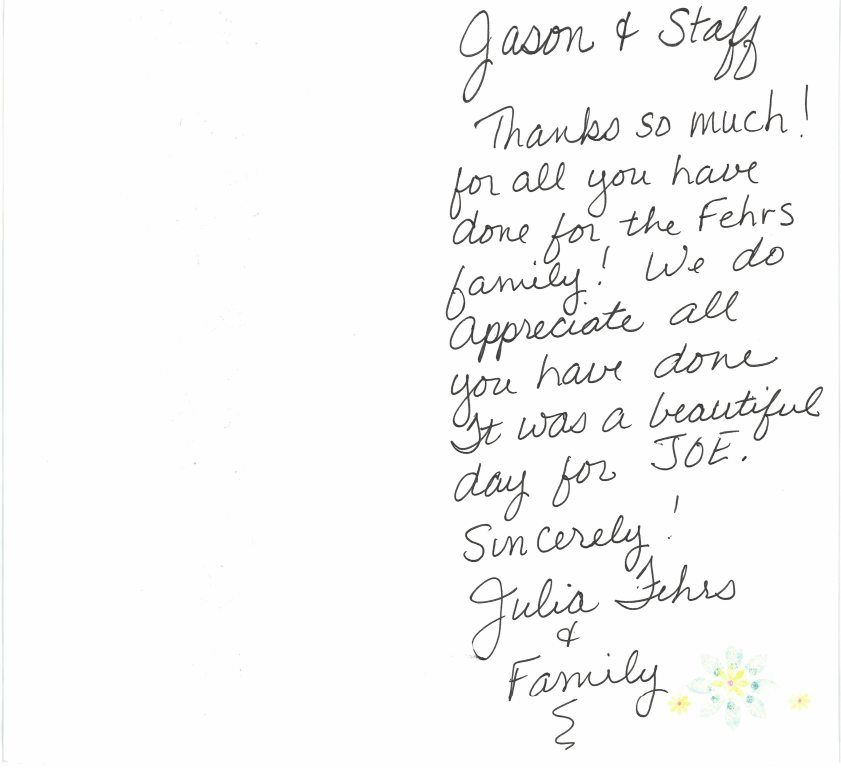 Jason & Staff
Thanks so much!
for all you have
done for the Fehrs
family! We do
appreciate all
you have done
It was a beautiful
day for JOE.
Sincerely!
Julia Fehrs
&
Family